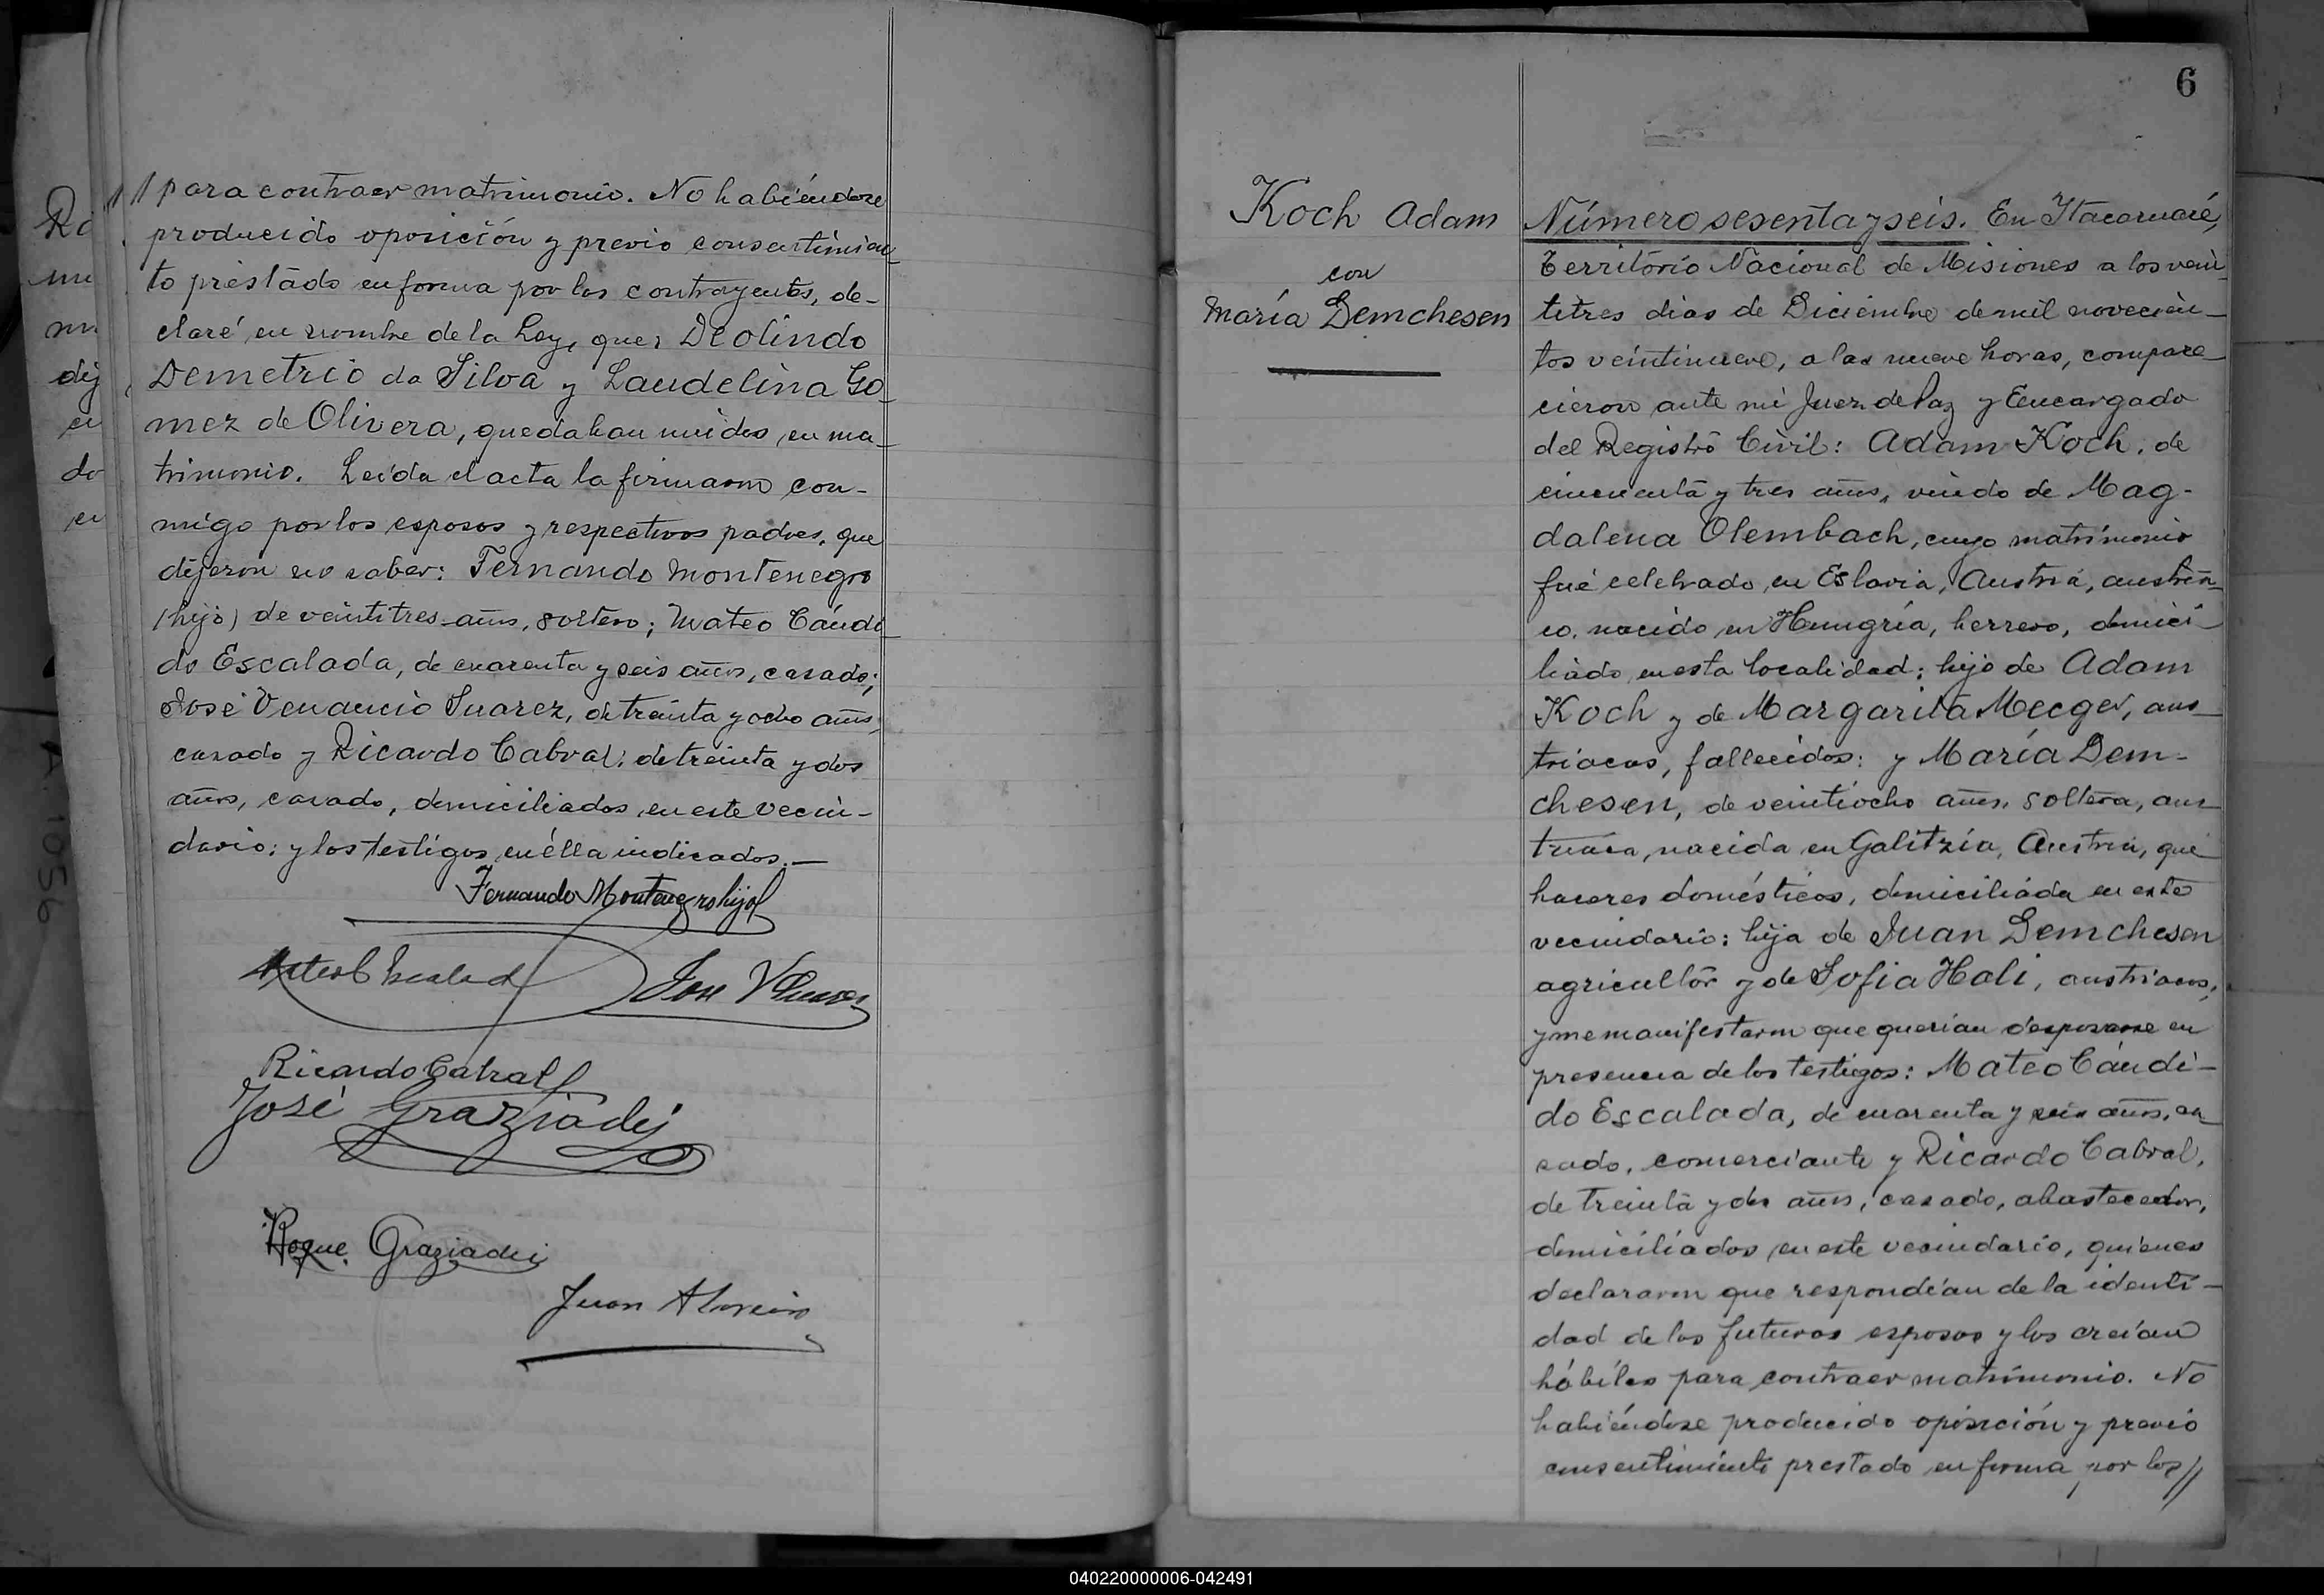 // para contraer matrimonio. No habiéndose
producido oposición y previo consentimien_
to prestado en forma por los contrayentes, de-
claré en nombre de la Ley, que, Deolindo
Demetrio da Silva y Laudelina Go_
mez de Olivera, quedaban unidos en ma_
trimonio. Leida el acta la firmaron con-
migo por los esposos y respectivos padres, que
dijeron no saber: Fernando Montenegro
(hijo) de veintitres años, soltero; Mateo Cándi_
do Escalada, de cuarenta y seis años, casado;
José Venancio Suarez, de treinta y ocho años,
casado y Ricardo Cabral: de treinta y dos
años, casado, domiciliados en este vecin-
dario: y los testigos en élla indicados._
Fernando Montenegro hijo
Ricardo Cabral
José Graziadei
Roque Graziadei
Juan
6
Koch Adam
con
María Demchesen
Número sesenta y seis. En Itacaruaré,
Territorio Nacional de Misiones a los vein_
titres dias de Diciembre de mil novecien_
tos veintinueve, a las nueve horas, compare_
cieron ante mi Juez de Paz y Encargado
del Registro Civil: Adam Koch, de
cincuenta y tres años, viudo de Mag-
dalena Olembach, cuyo matrimonio
fué celebrado en Eslavia, Austria, austría_
co, nacido en Hungría, herrero, domici_
liado en esta localidad; hijo de Adam
Koch y de Margarita Mecger, aus_
triacos, fallecidos: y María Dem-
chesen, de veintiocho años, soltera, aus_
triaca, nacida en Galitzia, Austria, que_
haceres domésticos, domiciliada en este
vecindario: hija de Juan Demchesen
agricultor y de Sofia Hali, austriacos;
y me manifestaron que querian desposarse en
presencia de los testigos: Mateo Cándi-
do Escalada, de cuarenta y seis años, ca_
sado, comerciante y Ricardo Cabral,
de treinta y dos años, casado, abastecedor,
domiciliados en este vecindario, quienes
declararon que respondían de la identi-
dad de los futuros esposos y los creían
hábiles para contraer matrimonio. No
habiéndose producido oposición y previo
consentimiento prestado en forma por los//
040220000006-042491